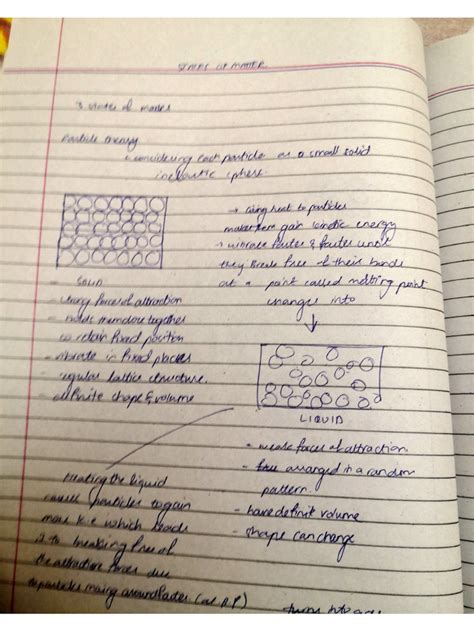 STATES OF MATTER
3 states of matter
Particle theory
considering each particle as a small solid
inelastic sphere.
→ using heat to particles
makes them gain kinetic energy
→ vibrate faster & faster until
they break free of their bonds
at a point called melting point
changes into
- SOLID
- strong forces of attraction
- holds them close together
to retain fixed position
- vibrate in fixed places
- regular lattice structure.
- definite shape & volume
LIQUID
- weak forces of attraction
- arranged in a random
pattern.
- have definit volume
- shape can change
Heating the liquid
causes particles to gain
more k.e which leads
to breaking free of
the attractive forces due
to particles moving around faster (at B.P)
turns into gas